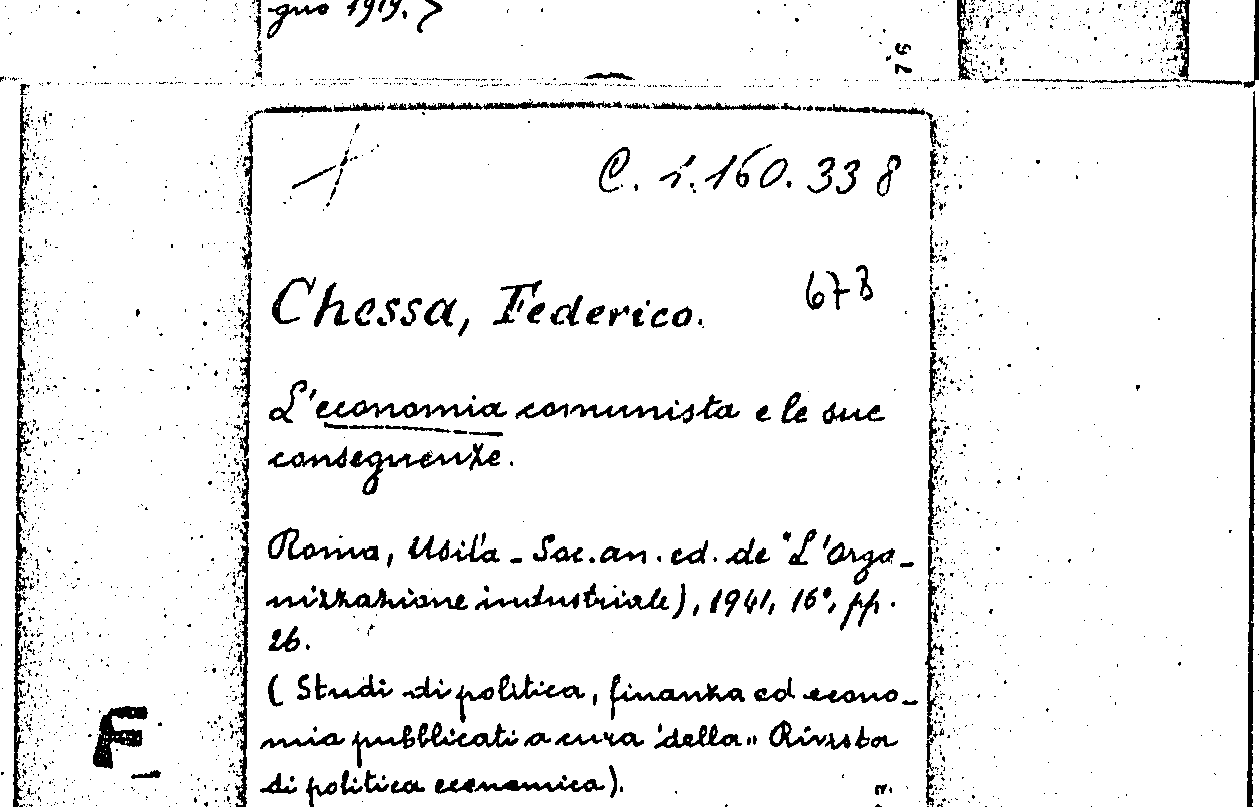 gno 1919. >
76
C. 5.160.338
Chessa, Federico.
673
L'economia comunista e le sue
conseguenze.
Roma, Usila - Soc. an. ed. de "L'Orga-
nizzazione industriale), 1941, 16°, pp.
26.
( Studi di politica, finanza ed econo-
mia pubblicati a cura della " Rivista
di politica economica).
F